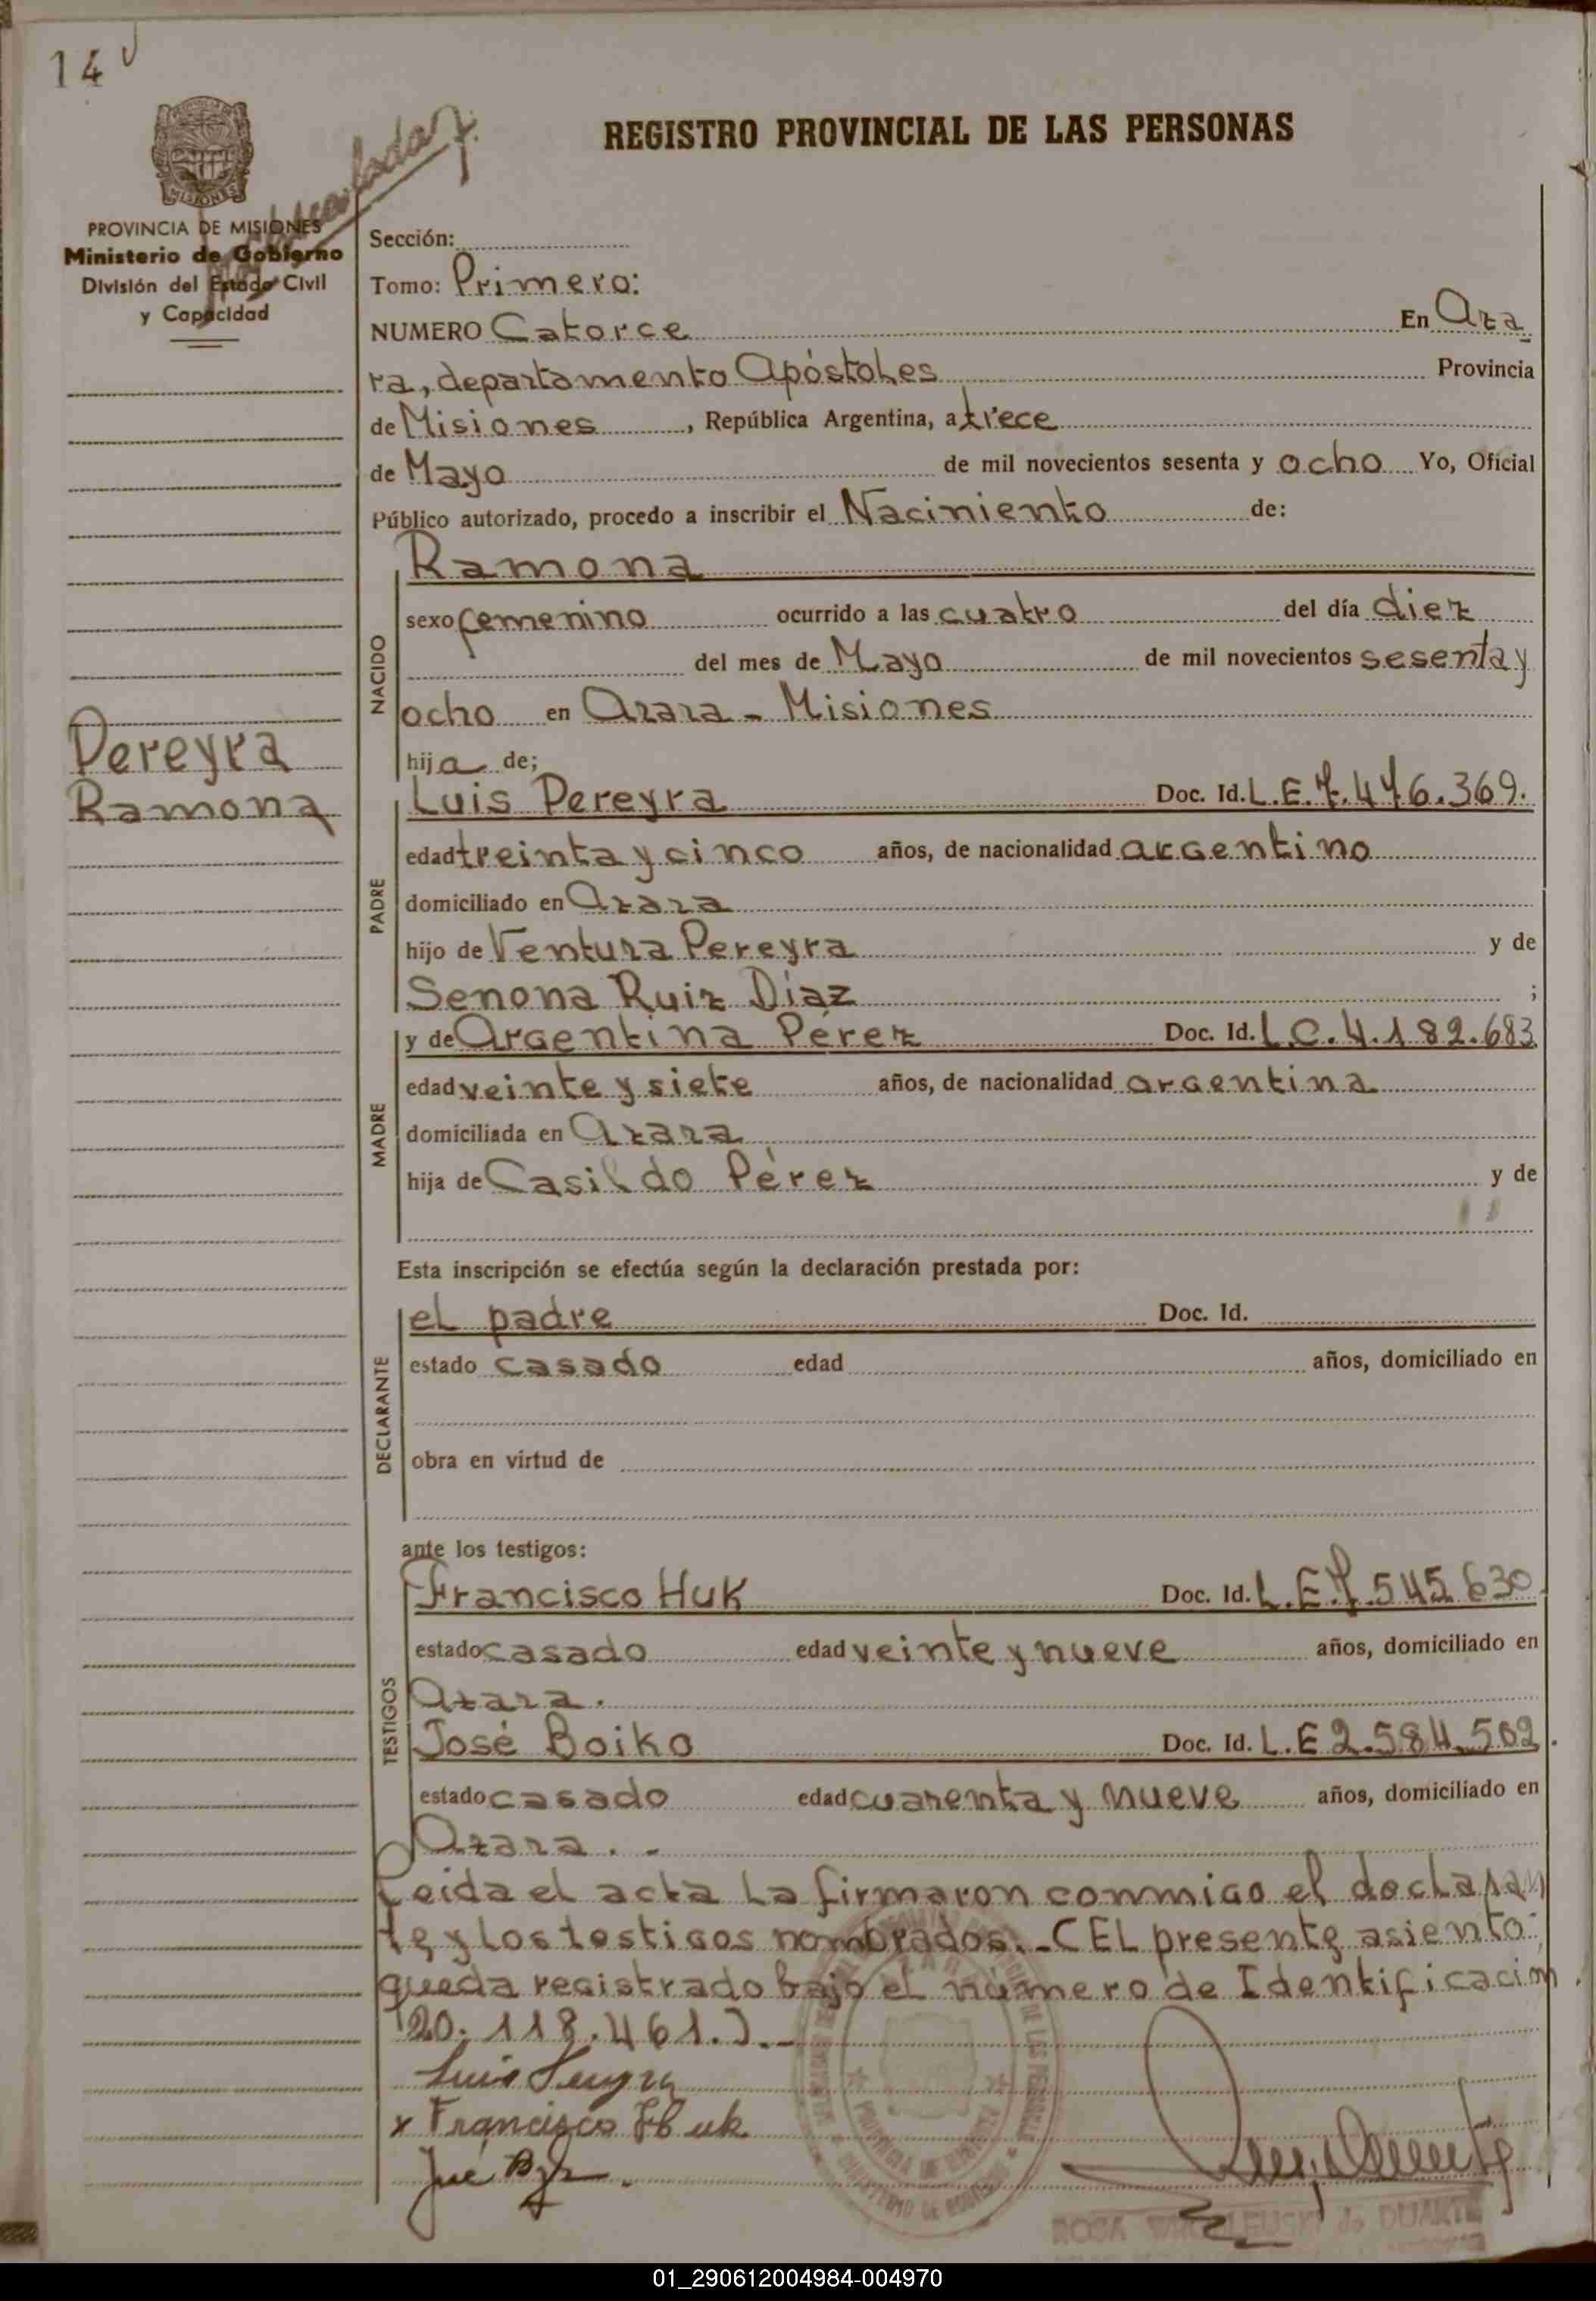 14
REGISTRO PROVINCIAL DE LAS PERSONAS
MISIONES
PROVINCIA DE MISIONES
Ministerio de Gobierno
División del Estado Civil
y Capacidad
Sección:
Tomo: Primero:
NUMERO Catorce En Aza
ra, departamento Apóstoles Provincia
de Misiones, República Argentina, a trece
de Mayo de mil novecientos sesenta y ocho Yo, Oficial
Público autorizado, procedo a inscribir el Naciniento de:
NACIDO
Ramona
sexo femenino ocurrido a las cuatro del día diez
del mes de Mayo de mil novecientos sesenta y
ocho en Azara - Misiones
hija de;
Pereyra
Ramona
PADRE
Luis Pereyra Doc. Id. L.E. 7.476.369.
edad treinta y cinco años, de nacionalidad argentino
domiciliado en Azara
hijo de Ventura Pereyra y de
Senona Ruiz Díaz ;
MADRE
y de Argentina Pérez Doc. Id. L.C. 4.182.683
edad veinte y siete años, de nacionalidad argentina
domiciliada en Azara
hija de Casildo Pérez y de
Esta inscripción se efectúa según la declaración prestada por:
DECLARANTE
el padre Doc. Id.
estado casado edad años, domiciliado en
obra en virtud de
ante los testigos:
TESTIGOS
Francisco Huk Doc. Id. L.E. 7.545.630
estado casado edad veinte y nueve años, domiciliado en
Azara.
José Boiko Doc. Id. L.E 2.584.502.
estado casado edad cuarenta y nueve años, domiciliado en
Azara. . -
Leida el acta la firmaron conmigo el declaran
te y los testigos nombrados. - (EL presente asiento
queda registrado bajo el número de Identificacion
20.118.461.). -
Luis Pereyra
x Francisco Huk
José
ROSA de DUARTE
01_290612004984-004970